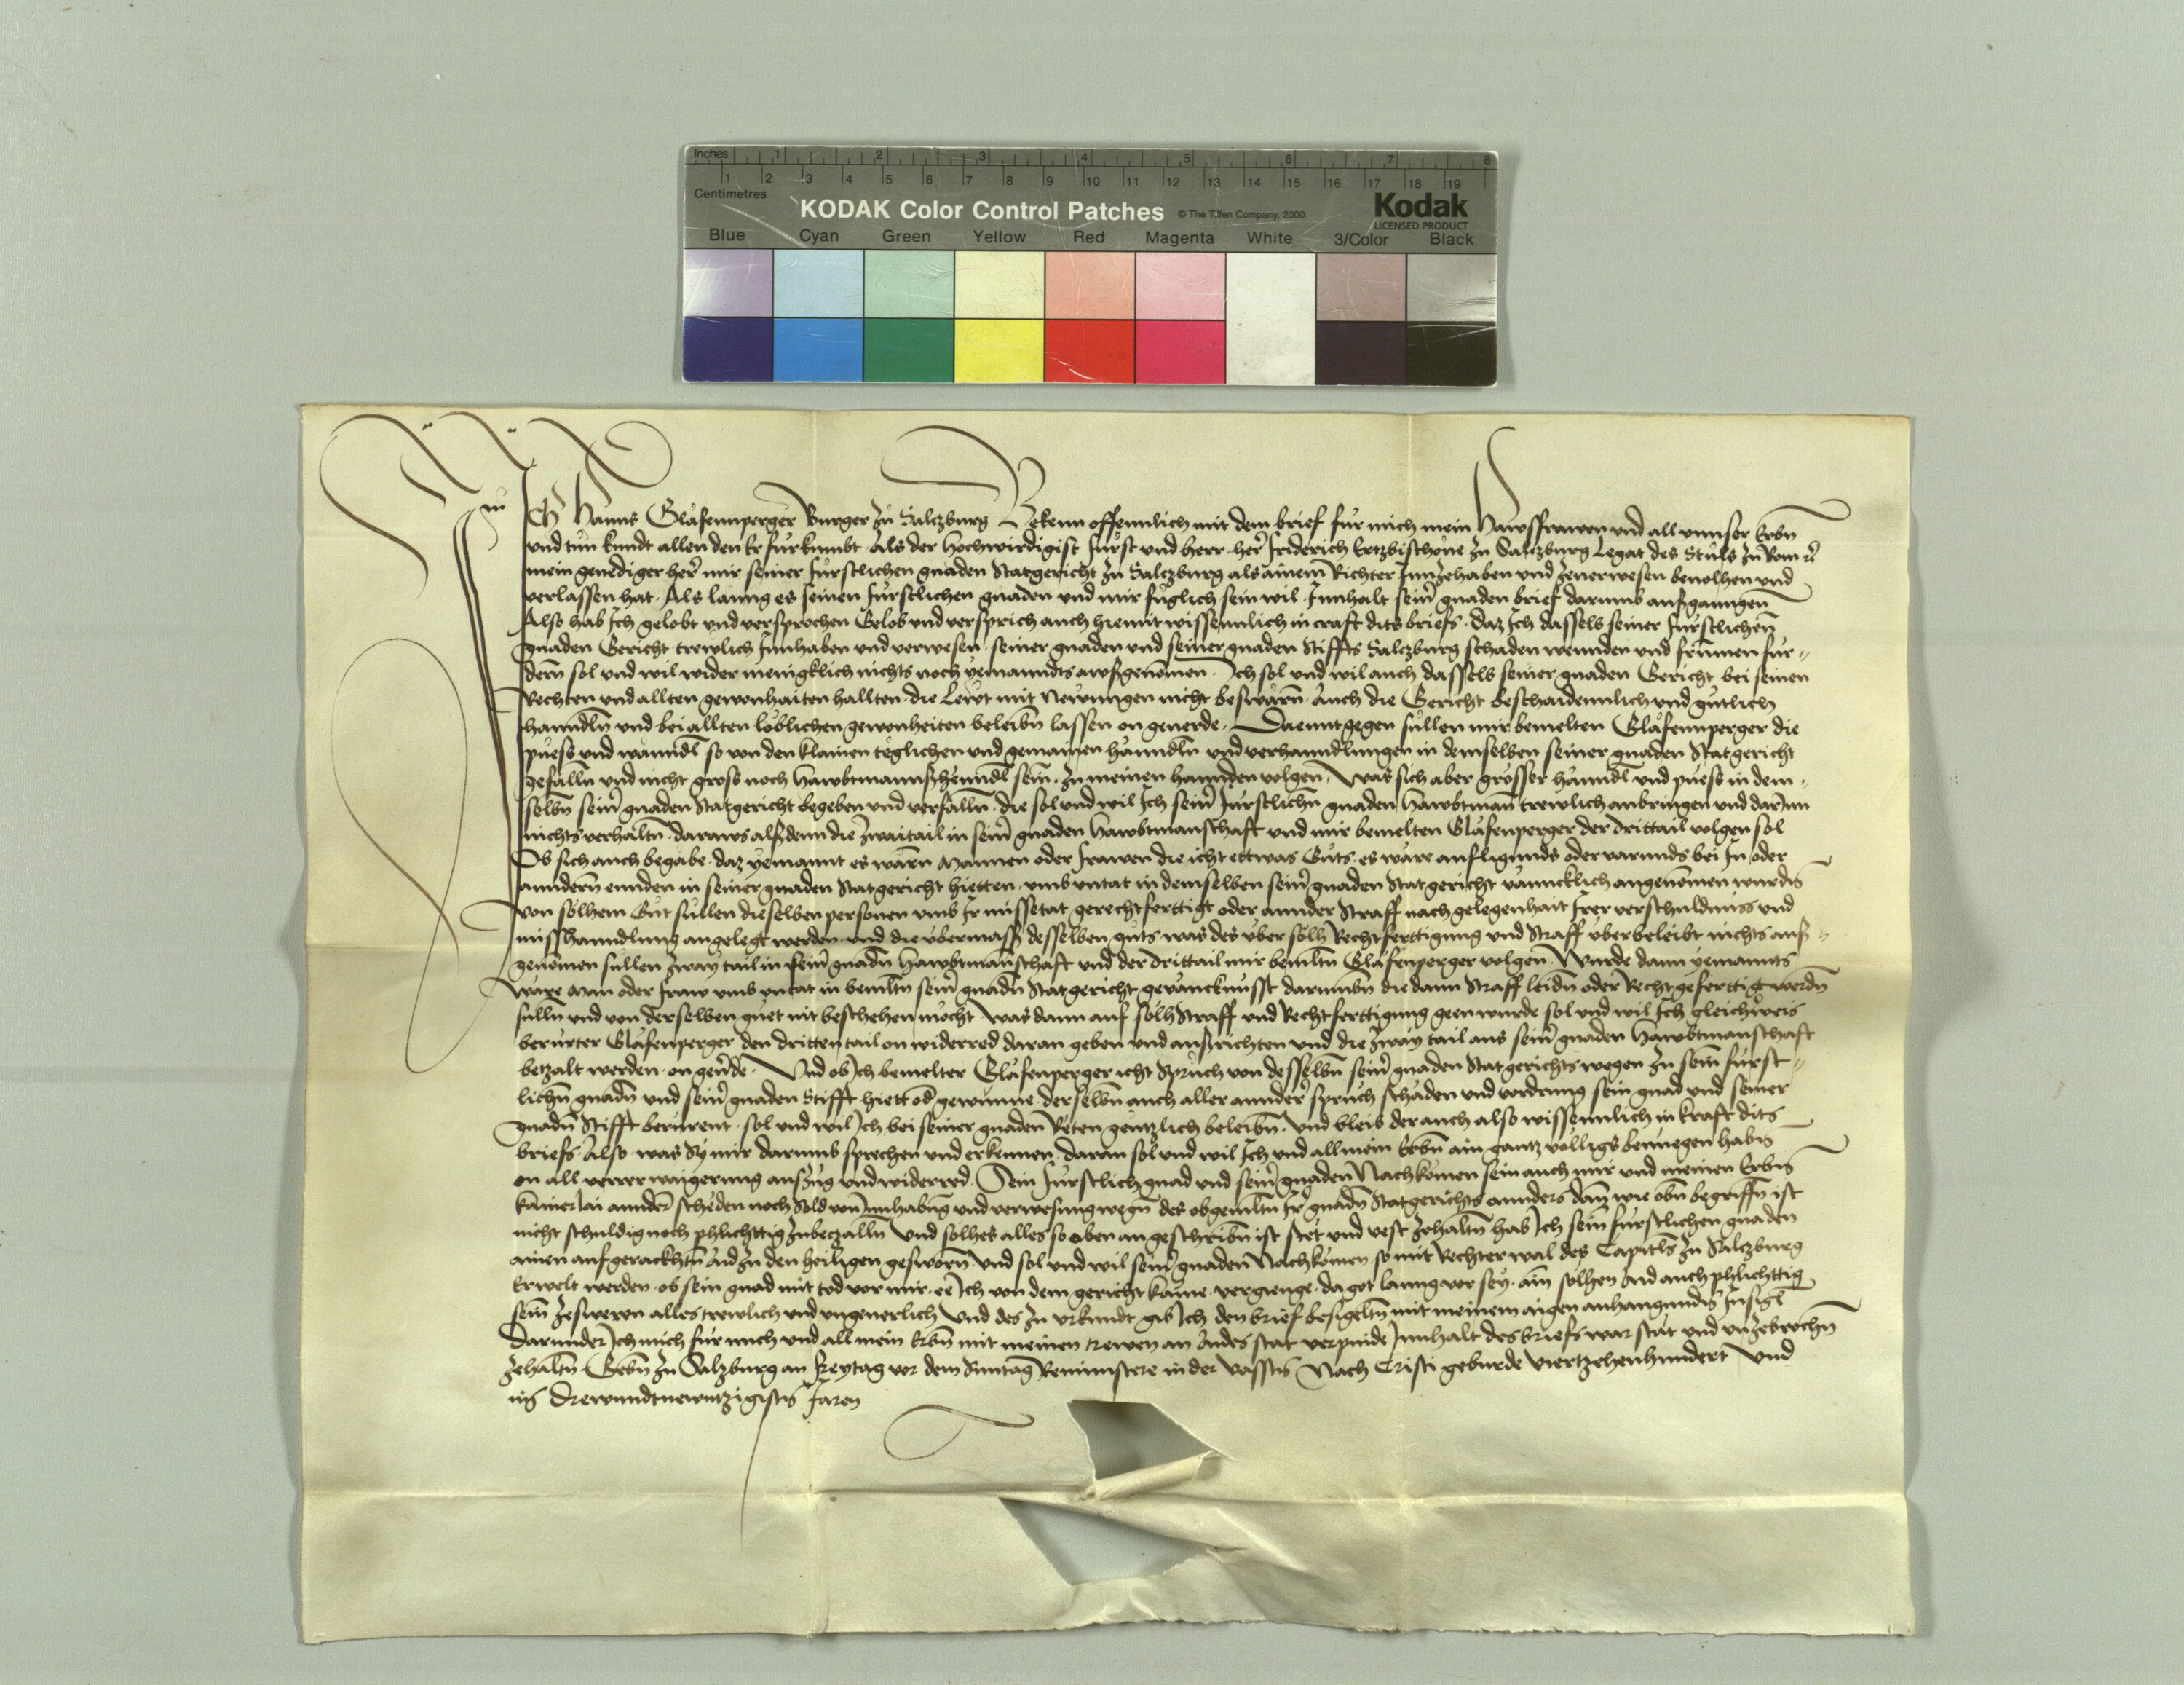 Inches 1 2 3 4 5 6 7 8
1 2 3 4 5 6 7 8 9 10 11 12 13 14 15 16 17 18 19
Centimetres
KODAK Color Control Patches © The Tiffen Company, 2000 Kodak
LICENSED PRODUCT
Blue Cyan Green Yellow Red Magenta White 3/Color Black
Ich Hanns Glåsennperger Burger zu Salczburg Bekenn offennlich mit dem brief fur mich mein Hawsfrawen und all unnser Erbn
und tun kundt allen den Er furkumbt Als der Hochwirdigist Furst und herr her Friderich Ertzbischoue zu Salczburg Legat des Stuls zu Rom ꝛc
mein genediger her mir seiner furstlichen gnaden Statgericht zu Salczburg als ainem Richter Innzehaben und zeuerwesen beuolhen und
verlassen hat. Als lanng es seinen furstlichen gnaden und mir fuglich sein wil Innhalt seinr gnaden brief darumb ausganngen
Also hab Ich gelobt und versprochen Gelob und versprich auch hiemit wissennlich in craft dits briefs. daz Ich dasselb seiner furstlichen
gnaden Gericht trewlich Innhaben und verwesen seiner gnaden und seiner gnaden Stiffts Salczburg schaden wennden und frumen fur-
dern sol und wil wider menigklich nichts noch yemanndts awsgenomen. Ich sol und wil auch dasselb seiner gnaden Gericht bei seinen
Rechten und allten gewonhaiten hallten die Lewt mit Newungen nicht beswårn auch die Gericht beschaidennlich und gutlich
hanndln und bei allten loblichen gewonheiten beleibn lassen on geuerde. Daenntgegen sullen mir bemelten Glåsennperger die
puess und wanndl so von den klainen teglichen und gemainen hanndln und verhanndlungen in demselben seiner gnaden Statgericht
gefalln und nicht gross noch Hawbtmannshenndl sein. zu meinen hannden volgen. Was sich aber grosser hanndl und puess in dem-
selbn seinr gnaden Statgericht begeben und verfalln die sol und wil Ich seinr furstlichn gnaden Hawbtman trewlich anbringen und darinn
nichts verhaltn. daraws alsdenn die zwaitail in seinr gnaden Hawbtmanschaft und mir bemelten Glåsenperger der drittail volgen sol
Ob sich auch begabe. daz yemannt es warn Mannen oder frawen die icht ettwas Guts. es ware anfligunds oder varunds bei In oder
anndern ennden in seiner gnaden Statgericht hietten. umb untat in demselben seinr gnaden Statgericht vanncklich angenomen wurden
von solhem Gut sullen dieselben personen umb Ir missetat gerechtferttigt oder annder Straff nach gelegenhait Irer verschuldnuss und
misshanndlung angelegt werden. und die ubermass desselben guts was des uber solh Rechtferttigung und Straff uberbeleibt nichts aus-
genomen sullen zway tail in seinr gnadn Hawbtmanschaft und der drittail mir bemeltn Glåsenperger volgen. Wurde dann yemannts
ware Man oder fraw umb untat in bemeltn seinr gnadn Statgericht gevancknusst darumbn die dann Straff leidn oder Rechtgeferttigt werdn
sulln und von derselben guet nit beschehen mocht Was dann auf solh Straff und Rechtferttigung geen wurde sol und wil Ich gleichweis
berurter Glåsenperger den dritten tail on widerred daran geben und ausrichten und die zway tail aus seinr gnaden Hawbtmanschaft
betzalt werden. on geuerde. Und ob Ich bemelter Glåsenperger icht Spruch von desselbn seinr gnaden Statgerichts wegen zu sein furst-
lichn gnadn und seinr gnaden Stifft hiett oder gewunne derselbn auch aller annder spruch schaden und vordrung sein gnad und seiner
gnadn Stifft berurent. sol und wil Ich bei seiner gnaden Reten genntzlich beleibn. Und bleib der auch also wissennlich in kraft dits
briefs Also. was Sy mir darumb sprechen und erkennen. daran sol und wil Ich und all mein Erbn ain gantz volligs benuegen haben
on all verrer waigerung auszug und widerred. Sein furstlich gnad und seinr gnaden Nachkomen sein auch mir und meinen Erben
kainerlai annder scheden noch Sold von Innhabung und verwesung wegn des obgemeltn Ir gnadn Statgerichts annders dann wie obn begriffn ist
nicht schuldig noch phlichttig zubeczalln Und solhes alles so oben angeschribn ist stet und vest zehaltn hab Ich sein furstlichen gnaden
ainen aufgerackhtn Aid zu den heiligen gesworn. Und sol und wil seinr gnaden Nachkomen so mit Rechter wal des Capitls zu Salczburg
Erwelt werden. ob sein gnad mit tod vor mir. ee Ich von dem gericht kame. vergienge. dagot lanng vor sey. ain solhen Aid auch phlichttig
sein zesweren alles trewlich und ungeuerlich Und des zu urkundt gib Ich den brief besigeltn mit meinem aigen anhangunden Insigl
Darunder Ich mich fur mich und all mein Erbn mit meinen trewen an Aides stat verpinde Innhalt des briefs war stat und unzebrochn
zehaltn Gebn zu Salzburg an Freytag vor dem Sunntag Reminiscere in der Vassten Nach Cristi geburde Viertzehenhundert Und
im Drewundtnewntzigisten Jaren